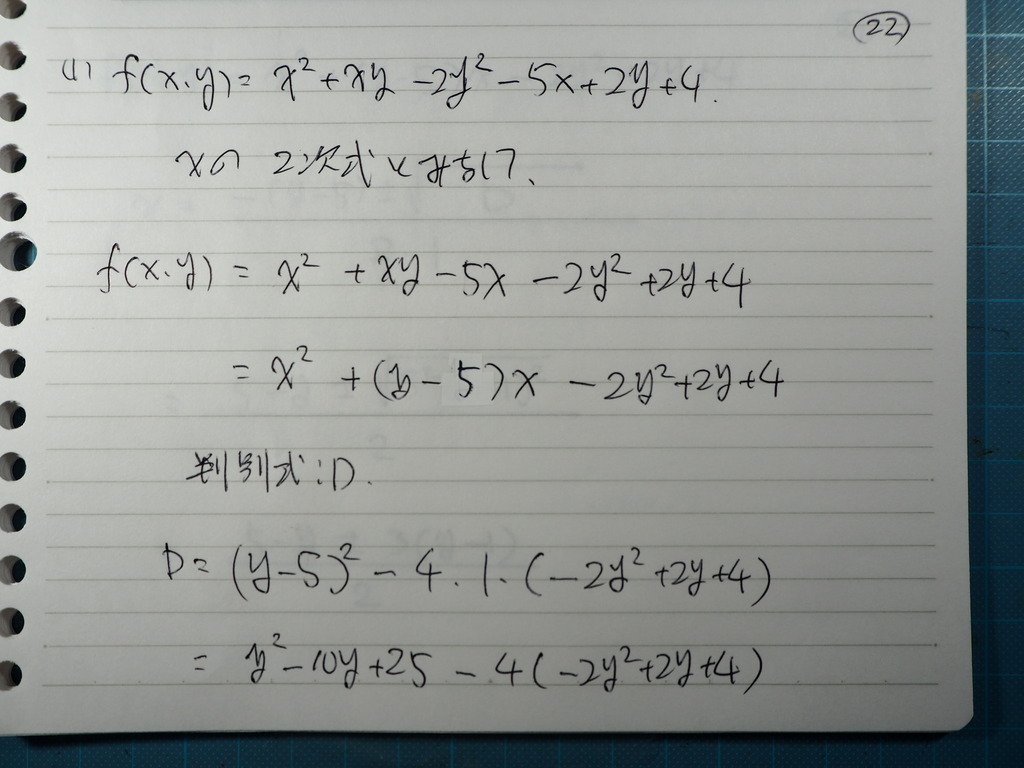 (22)
(1) f(x.y) = x² + xy - 2y² - 5x + 2y + 4.
xの 2次式とみなして、
f(x.y) = x² + xy - 5x - 2y² + 2y + 4
= x² + (y - 5)x - 2y² + 2y + 4
判別式:D.
D = (y - 5)² - 4 . 1 . (-2y² + 2y + 4)
= y² - 10y + 25 - 4(-2y² + 2y + 4)